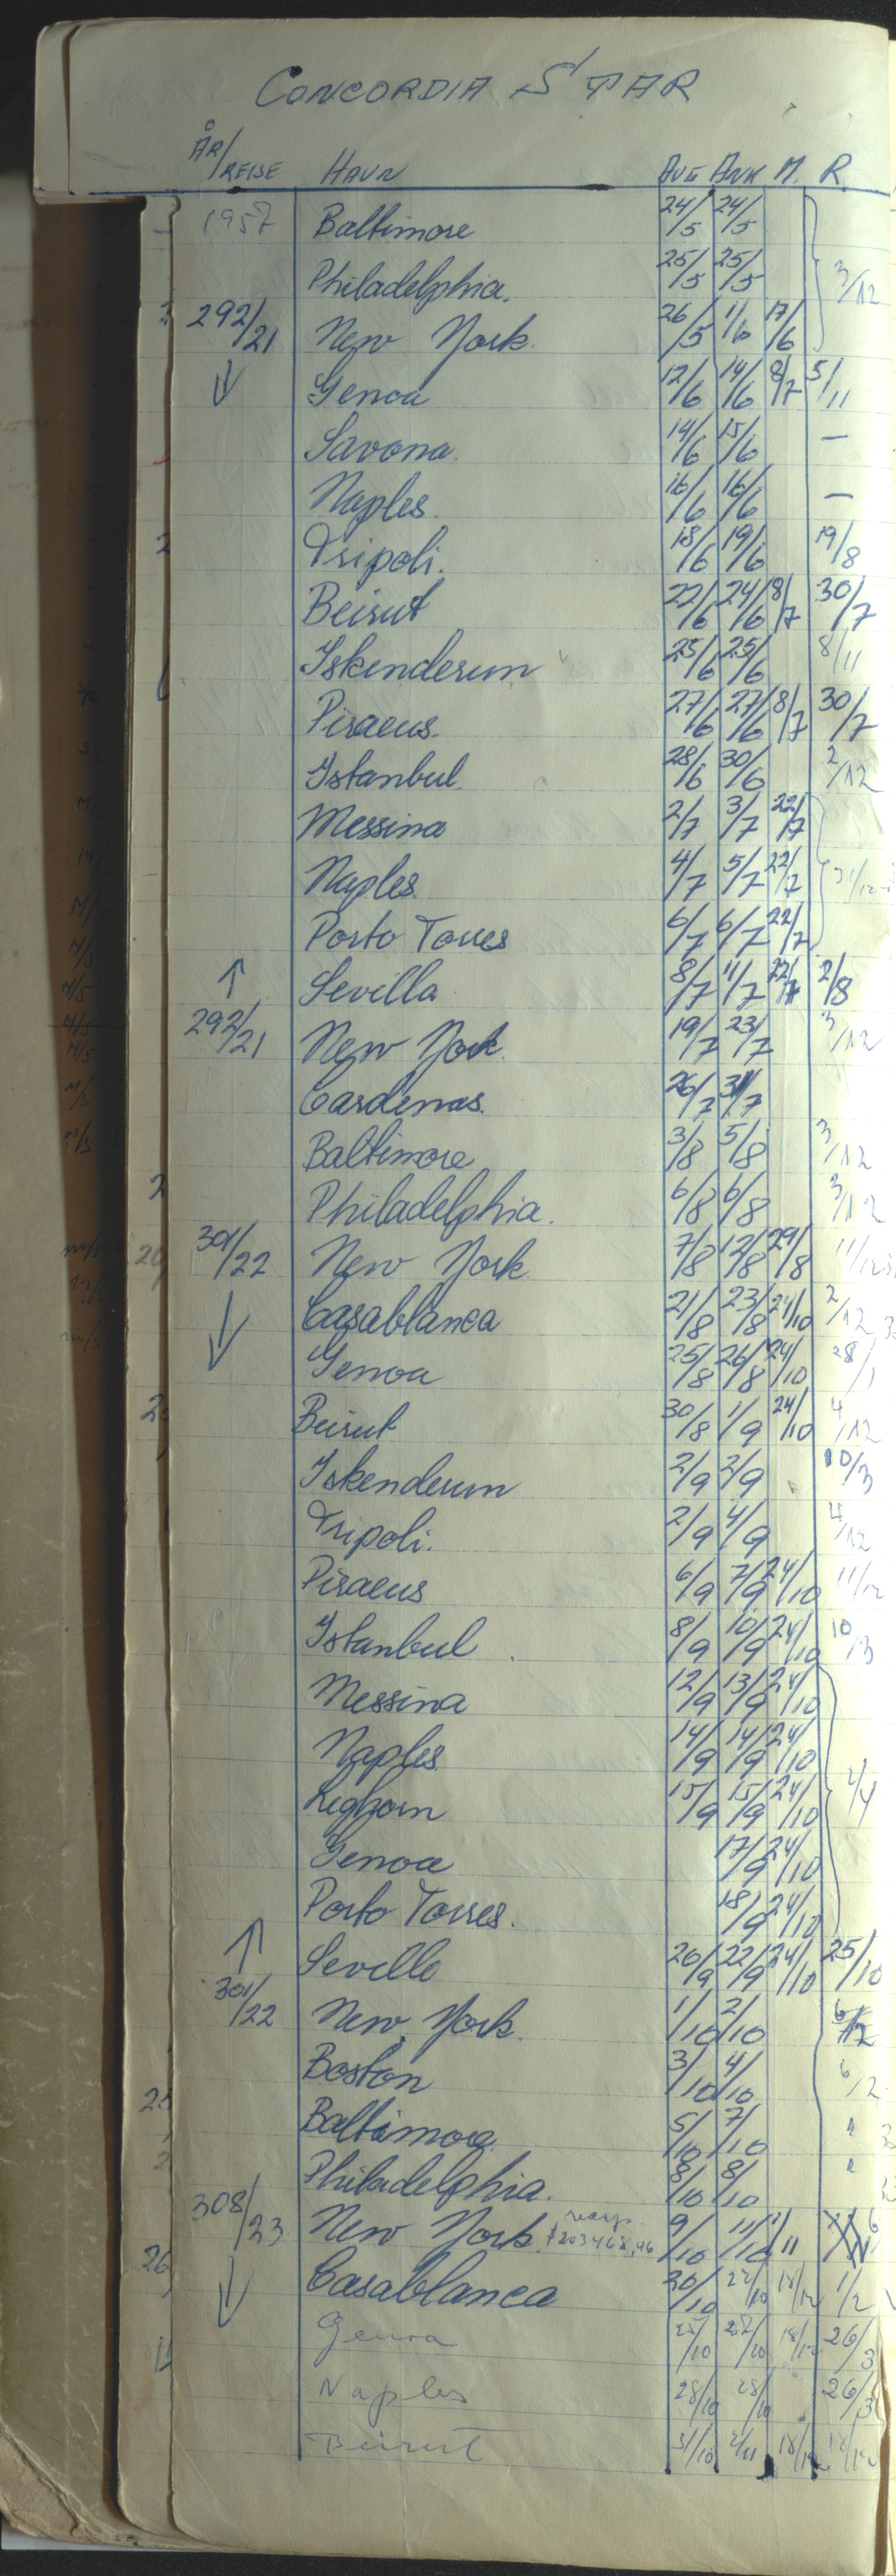 CONCORDIA STAR
ÅR/REISE HAVN AVG ANK M. R.
1957 Baltimore 24/5 24/5
Philadelphia. 25/5 25/5 3/12
292/21 New York. 26/5 1/6 17/6
↓ Genoa 12/6 14/6 8/7 5/11
Savona. 14/6 15/6 —
Naples. 16/6 16/6 —
Tripoli. 18/6 19/6 19/8
Beirut 22/6 24/6 8/7 30/7
Iskenderun 25/6 25/6 8/11
Piraeus. 27/6 27/6 8/7 30/7
Istanbul. 28/6 30/6 2/12
Messina 2/7 3/7 22/7
Naples. 4/7 5/7 22/7 31/12
Porto Torres 6/7 6/7 22/7
↑ Sevilla 8/7 11/7 22/7 2/8
292/21 New York. 19/7 23/7 3/12
Cardenas. 26/7 31/7
Baltimore 3/8 5/8 3/12
Philadelphia. 6/8 6/8 3/12
301/22 New York 7/8 12/8 29/8 11/12
↓ Casablanca 21/8 23/8 24/10 2/12
Genoa 25/8 26/8 24/10 28/1
Beirut 30/8 1/9 24/10 4/12
Iskenderun 2/9 2/9 10/3
Tripoli. 2/9 4/9 4/12
Piraeus 6/9 7/9 24/10 11/12
Istanbul 8/9 10/9 24/10 10/3
Messina 12/9 13/9 24/10
Naples 14/9 14/9 24/10
Leghorn 15/9 15/9 24/10
Genoa 17/9 24/10
Porto Torres. 18/9 24/10
↑ Sevilla 20/9 22/9 24/10 25/10
301/22 New York. 1/10 2/10
Boston 3/10 4/10 6/2
Baltimore 5/10 7/10 "
Philadelphia. 8/10 8/10 "
308/23 New York. 9/10 11/10 1/11
↓ Casablanca 20/10 22/10 18/12 1/2
Genoa 25/10 27/10 18/12 26/3
Naples 28/10 28/10 26/3
Beirut 31/10 2/11 18/12